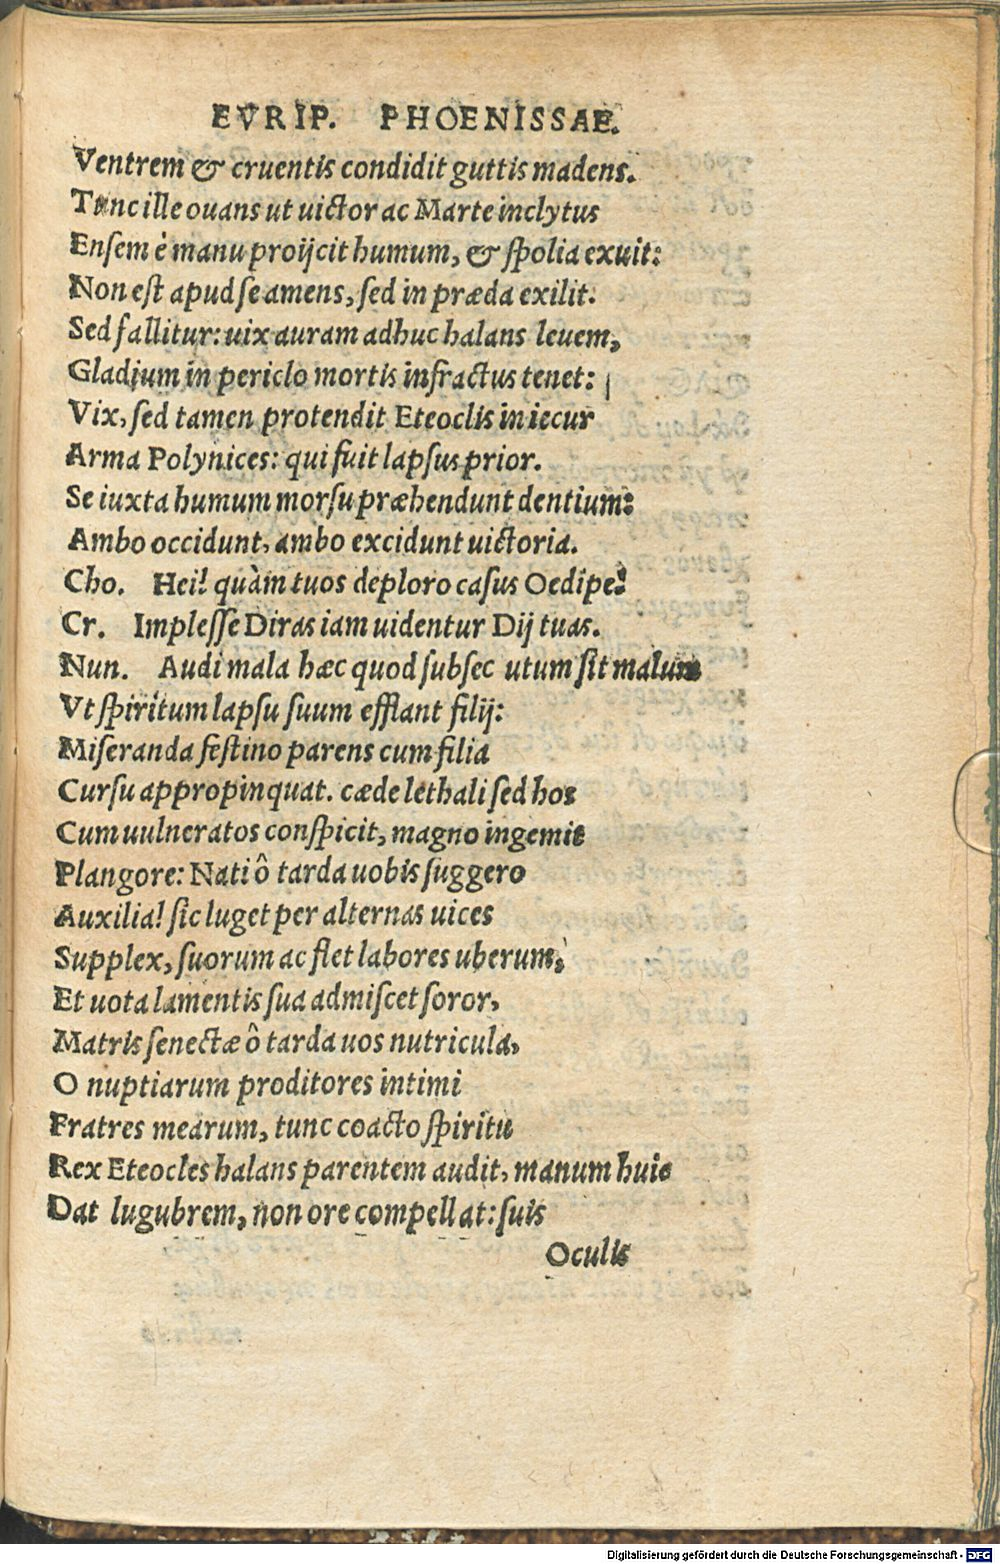 EVRIP. PHOENISSAE.
Ventrem & cruentis condidit guttis madens.
Tunc ille ouans ut uictor ac Marte inclytus
Ensem è manu proijcit humum, & spolia exuit:
Non est apud se amens, sed in præda exilit.
Sed fallitur: uix auram adhuc halans leuem,
Gladium in periclo mortis infractus tenet:
Vix, sed tamen protendit Eteoclis in iecur
Arma Polynices: qui fuit lapsus prior.
Se iuxta humum morsu præhendunt dentium:
Ambo occidunt, ambo excidunt uictoria.
Cho. Hei! quàm tuos deploro casus Oedipe!
Cr. Implesse Diras iam uidentur Dij tuas.
Nun. Audi mala hæc quod subsec utum sit malum
Vt spiritum lapsu suum efflant filij:
Miseranda festino parens cum filia
Cursu appropinquat. cæde lethali sed hos
Cum uulneratos conspicit, magno ingemit
Plangore: Nati ô tarda uobis suggero
Auxilia! sic luget per alternas uices
Supplex, suorum ac flet labores uberum,
Et uota lamentis sua admiscet soror,
Matris senectæ ô tarda uos nutricula,
O nuptiarum proditores intimi
Fratres mearum, tunc coacto spiritu
Rex Eteocles halans parentem audit, manum huic
Dat lugubrem, non ore compellat: suis
Oculis
Digitalisierung gefördert durch die Deutsche Forschungsgemeinschaft - DFG